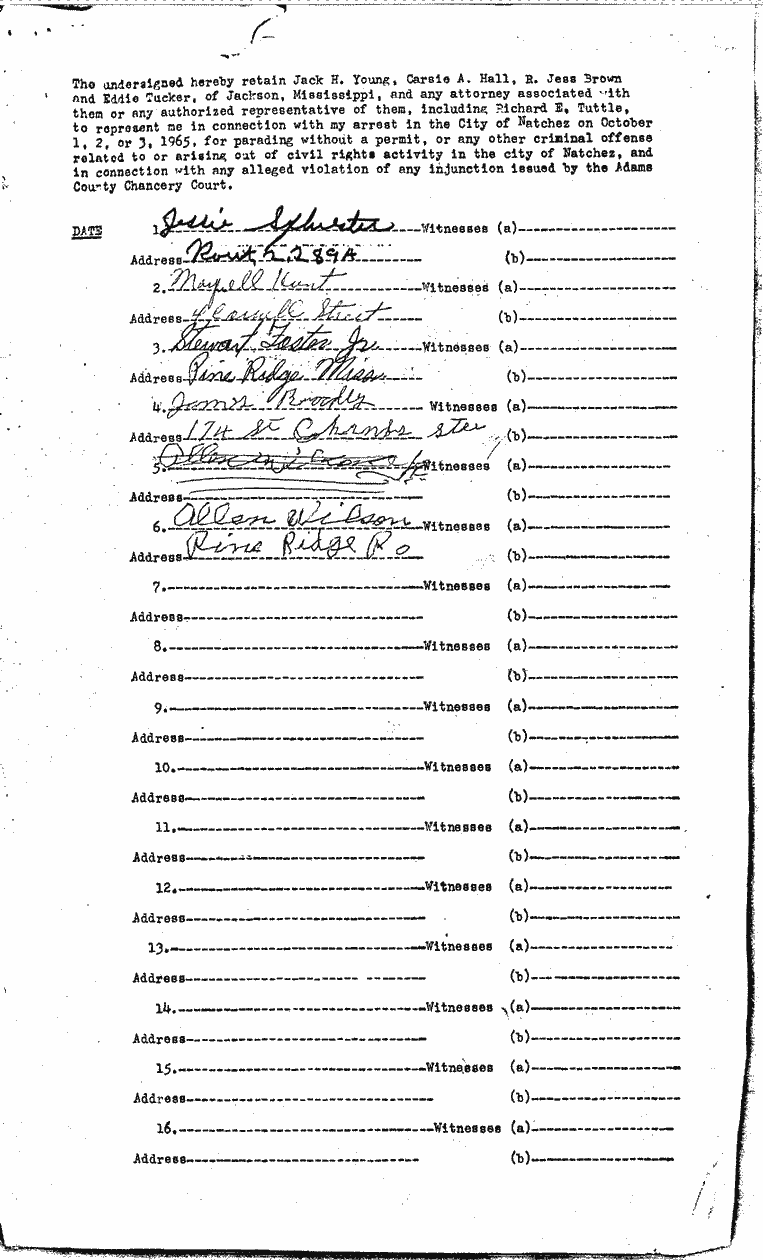 The undersigned hereby retain Jack H. Young, Carsie A. Hall, R. Jess Brown
and Eddie Tucker, of Jackson, Mississippi, and any attorney associated with
them or any authorized representative of them, including Richard E. Tuttle,
to represent me in connection with my arrest in the City of Natchez on October
1, 2, or 3, 1965, for parading without a permit, or any other criminal offense
related to or arising out of civil rights activity in the city of Natchez, and
in connection with any alleged violation of any injunction issued by the Adams
County Chancery Court.
DATE 1. Jessie Sylvester Witnesses (a)
Address Rout 2, 289A (b)
2. Mayell Hunt Witnesses (a)
Address 4 Street (b)
3. Stewart Foster Jr. Witnesses (a)
Address Pine Ridge Miss (b)
4. James Witnesses (a)
Address 174 St (b)
5. Witnesses (a)
Address (b)
6. Allen Wilson Witnesses (a)
Address Pine Ridge Ro (b)
7. Witnesses (a)
Address (b)
8. Witnesses (a)
Address (b)
9. Witnesses (a)
Address (b)
10. Witnesses (a)
Address (b)
11. Witnesses (a)
Address (b)
12. Witnesses (a)
Address (b)
13. Witnesses (a)
Address (b)
14. Witnesses (a)
Address (b)
15. Witnesses (a)
Address (b)
16. Witnesses (a)
Address (b)